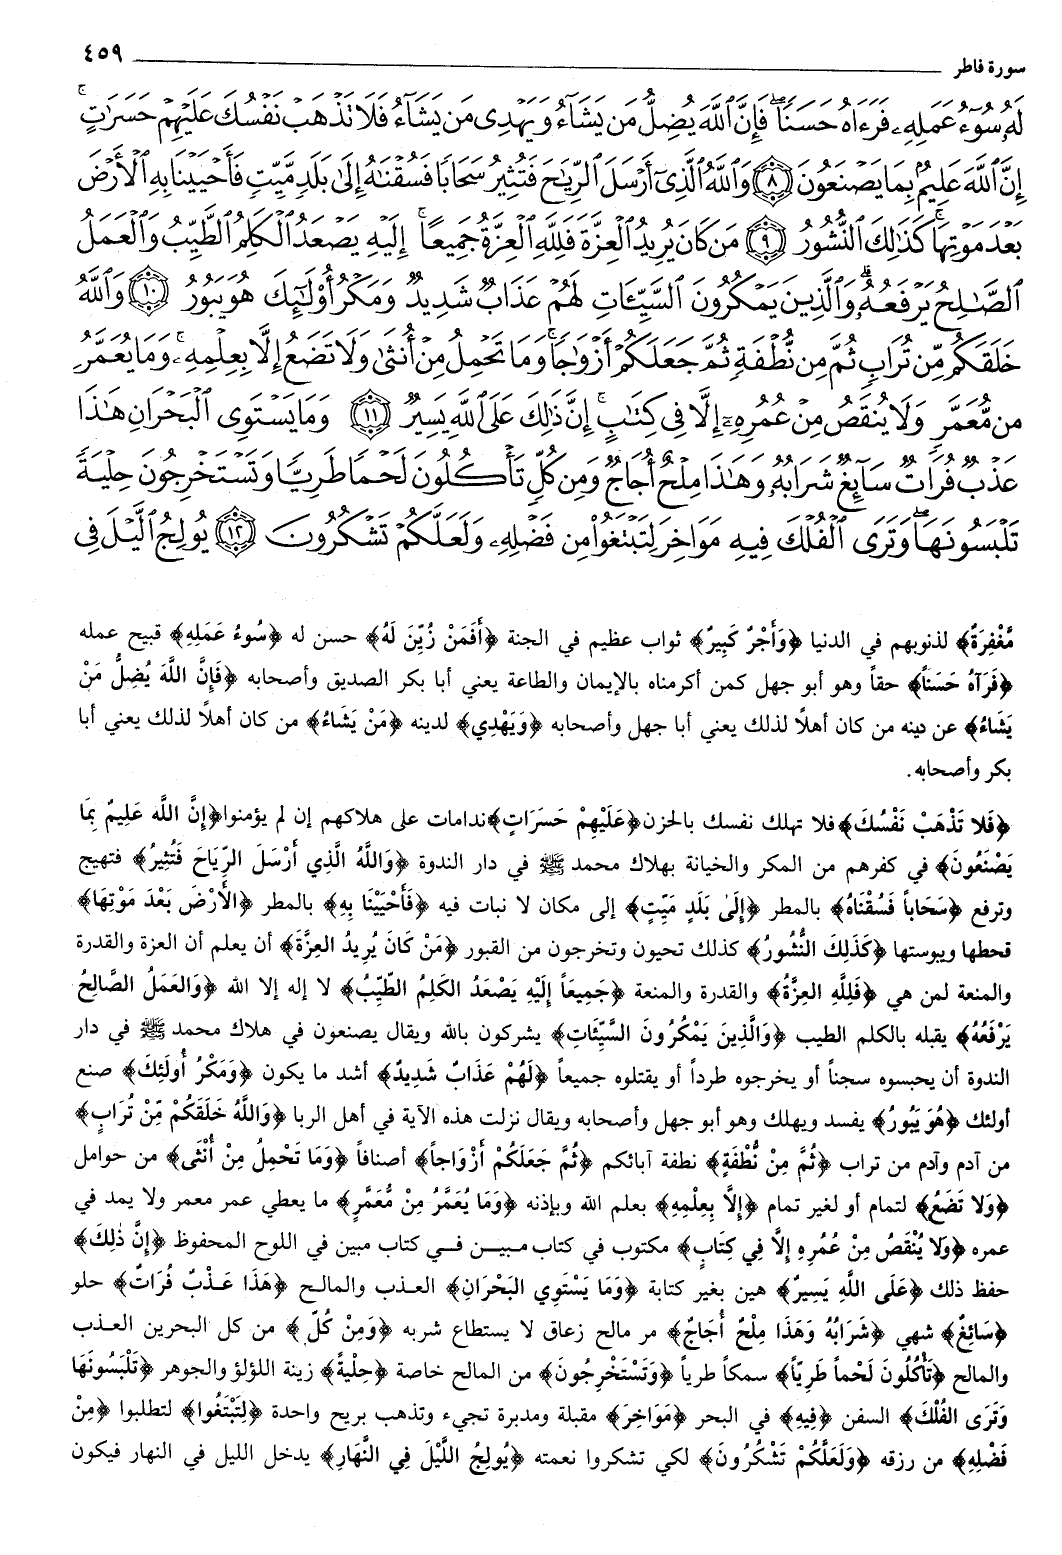 سورة فاطر ٤٥٩
لَهُۥ سُوٓءُ عَمَلِهِۦ فَرَءَاهُ حَسَنًا ۖ فَإِنَّ ٱللَّهَ يُضِلُّ مَن يَشَآءُ وَيَهْدِى مَن يَشَآءُ فَلَا تَذْهَبْ نَفْسُكَ عَلَيْهِمْ حَسَرَٰتٍ ۚ
إِنَّ ٱللَّهَ عَلِيمٌۢ بِمَا يَصْنَعُونَ ﴿٨﴾ وَٱللَّهُ ٱلَّذِىٓ أَرْسَلَ ٱلرِّيَٰحَ فَتُثِيرُ سَحَابًا فَسُقْنَٰهُ إِلَىٰ بَلَدٍ مَّيِّتٍ فَأَحْيَيْنَا بِهِ ٱلْأَرْضَ
بَعْدَ مَوْتِهَا ۚ كَذَٰلِكَ ٱلنُّشُورُ ﴿٩﴾ مَن كَانَ يُرِيدُ ٱلْعِزَّةَ فَلِلَّهِ ٱلْعِزَّةُ جَمِيعًا ۚ إِلَيْهِ يَصْعَدُ ٱلْكَلِمُ ٱلطَّيِّبُ وَٱلْعَمَلُ
ٱلصَّٰلِحُ يَرْفَعُهُۥ ۚ وَٱلَّذِينَ يَمْكُرُونَ ٱلسَّيِّـَٔاتِ لَهُمْ عَذَابٌ شَدِيدٌ ۖ وَمَكْرُ أُو۟لَٰٓئِكَ هُوَ يَبُورُ ﴿١٠﴾ وَٱللَّهُ
خَلَقَكُم مِّن تُرَابٍ ثُمَّ مِن نُّطْفَةٍ ثُمَّ جَعَلَكُمْ أَزْوَٰجًا ۚ وَمَا تَحْمِلُ مِنْ أُنثَىٰ وَلَا تَضَعُ إِلَّا بِعِلْمِهِۦ ۚ وَمَا يُعَمَّرُ
مِن مُّعَمَّرٍ وَلَا يُنقَصُ مِنْ عُمُرِهِۦٓ إِلَّا فِى كِتَٰبٍ ۚ إِنَّ ذَٰلِكَ عَلَى ٱللَّهِ يَسِيرٌ ﴿١١﴾ وَمَا يَسْتَوِى ٱلْبَحْرَانِ هَٰذَا
عَذْبٌ فُرَاتٌ سَآئِغٌ شَرَابُهُۥ وَهَٰذَا مِلْحٌ أُجَاجٌ ۖ وَمِن كُلٍّ تَأْكُلُونَ لَحْمًا طَرِيًّا وَتَسْتَخْرِجُونَ حِلْيَةً
تَلْبَسُونَهَا ۖ وَتَرَى ٱلْفُلْكَ فِيهِ مَوَاخِرَ لِتَبْتَغُوا۟ مِن فَضْلِهِۦ وَلَعَلَّكُمْ تَشْكُرُونَ ﴿١٢﴾ يُولِجُ ٱلَّيْلَ فِى
مَّغْفِرَةٌ﴾ لذنوبهم في الدنيا ﴿وَأَجْرٌ كَبِيرٌ﴾ ثواب عظيم في الجنة ﴿أَفَمَنْ زُيِّنَ لَهُ﴾ حسن له ﴿سُوءُ عَمَلِهِ﴾ قبيح عمله
﴿فَرَآهُ حَسَناً﴾ حقاً وهو أبو جهل كمن أكرمناه بالإيمان والطاعة يعني أبا بكر الصديق وأصحابه ﴿فَإِنَّ اللَّهَ يُضِلُّ مَنْ
يَشَاءُ﴾ عن دينه من كان أهلاً لذلك يعني أبا جهل وأصحابه ﴿وَيَهْدِي﴾ لدينه ﴿مَنْ يَشَاءُ﴾ من كان أهلاً لذلك يعني أبا
بكر وأصحابه.
﴿فَلا تَذْهَبْ نَفْسُكَ﴾ فلا تهلك نفسك بالحزن ﴿عَلَيْهِمْ حَسَرَاتٍ﴾ ندامات على هلاكهم إن لم يؤمنوا ﴿إِنَّ اللَّه عَلِيمٌ بِمَا
يَصْنَعُونَ﴾ في كفرهم من المكر والخيانة بهلاك محمد ﷺ في دار الندوة ﴿وَاللَّهُ الَّذِي أَرْسَلَ الرِّيَاحَ فَتُثِيرُ﴾ فتهيج
وترفع ﴿سَحَاباً فَسُقْنَاهُ﴾ بالمطر ﴿إِلَىٰ بَلَدٍ مَيِّتٍ﴾ إلى مكان لا نبات فيه ﴿فَأَحْيَيْنَا بِهِ﴾ بالمطر ﴿الأَرْضَ بَعْدَ مَوْتِهَا﴾
قحطها ويبوستها ﴿كَذَلِكَ النُّشُورُ﴾ كذلك تحيون وتخرجون من القبور ﴿مَنْ كَانَ يُرِيدُ العِزَّةَ﴾ أن يعلم أن العزة والقدرة
والمنعة لمن هي ﴿فَلِلَّهِ العِزَّةُ﴾ والقدرة والمنعة ﴿جَمِيعاً إِلَيْهِ يَصْعَدُ الكَلِمُ الطَّيِّبُ﴾ لا إله إلا الله ﴿وَالعَمَلُ الصَّالِحُ
يَرْفَعُهُ﴾ يقبله بالكلم الطيب ﴿وَالَّذِينَ يَمْكُرُونَ السَّيِّئَاتِ﴾ يشركون بالله ويقال يصنعون في هلاك محمد ﷺ في دار
الندوة أن يحبسوه سجناً أو يخرجوه طرداً أو يقتلوه جميعاً ﴿لَهُمْ عَذَابٌ شَدِيدٌ﴾ أشد ما يكون ﴿وَمَكْرُ أُولَئِكَ﴾ صنع
أولئك ﴿هُوَ يَبُورُ﴾ يفسد ويهلك وهو أبو جهل وأصحابه ويقال نزلت هذه الآية في أهل الربا ﴿وَاللَّهُ خَلَقَكُمْ مِّنْ تُرَابٍ﴾
من آدم وآدم من تراب ﴿ثُمَّ مِنْ نُّطْفَةٍ﴾ نطفة آبائكم ﴿ثُمَّ جَعَلَكُمْ أَزْوَاجاً﴾ أصنافاً ﴿وَمَا تَحْمِلُ مِنْ أُنْثَى﴾ من حوامل
﴿وَلا تَضَعُ﴾ لتمام أو لغير تمام ﴿إِلاَّ بِعِلْمِهِ﴾ بعلم الله وبإذنه ﴿وَمَا يُعَمَّرُ مِنْ مُّعَمَّرٍ﴾ ما يعطي عمر معمر ولا يمد في
عمره ﴿وَلا يُنْقَصُ مِنْ عُمُرِهِ إِلاَّ فِي كِتَابٍ﴾ مكتوب في كتاب مبين في كتاب مبين في اللوح المحفوظ ﴿إِنَّ ذٰلِكَ﴾
حفظ ذلك ﴿عَلَى اللَّهِ يَسِيرٌ﴾ هين بغير كتابة ﴿وَمَا يَسْتَوِي البَحْرَانِ﴾ العذب والمالح ﴿هَذَا عَذْبٌ فُرَاتٌ﴾ حلو
﴿سَائِغٌ﴾ شهي ﴿شَرَابُهُ وَهَذَا مِلْحٌ أُجَاجٌ﴾ مر مالح زعاق لا يستطاع شربه ﴿وَمِنْ كُلٍّ﴾ من كل البحرين العذب
والمالح ﴿تَأْكُلُونَ لَحْماً طَرِيّاً﴾ سمكاً طرياً ﴿وَتَسْتَخْرِجُونَ﴾ من المالح خاصة ﴿حِلْيةً﴾ زينة اللؤلؤ والجوهر ﴿تَلْبَسُونَهَا
وَتَرَى الفُلْكَ﴾ السفن ﴿فِيهِ﴾ في البحر ﴿مَوَاخِرَ﴾ مقبلة ومدبرة تجيء وتذهب بريح واحدة ﴿لِتَبْتَغُوا﴾ لتطلبوا ﴿مِنْ
فَضْلِهِ﴾ من رزقه ﴿وَلَعَلَّكُمْ تَشْكُرُونَ﴾ لكي تشكروا نعمته ﴿يُولِجُ اللَّيْلَ فِي النَّهَارِ﴾ يدخل الليل في النهار فيكون